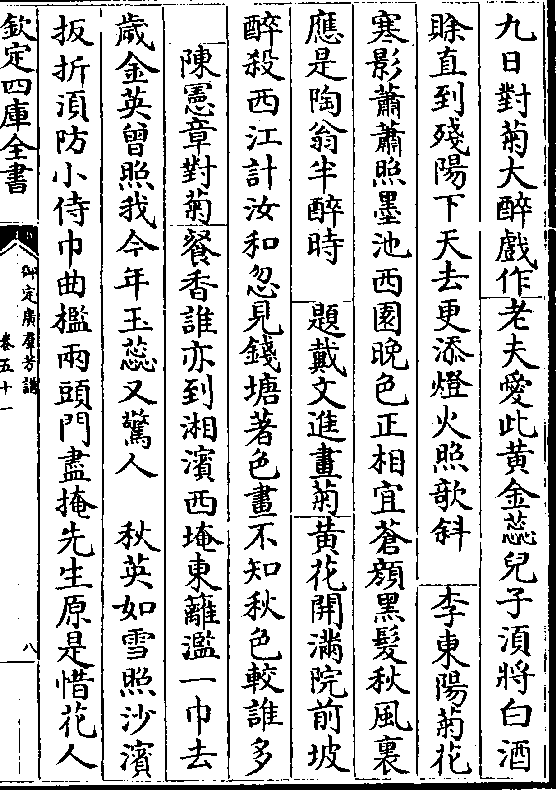 九日對菊大醉戲作老夫愛此黄金蕊兒子湏將白酒
賖直到殘陽下天去更添燈火照歌斜　李東陽菊花
寒影蕭蕭照墨池西園晚色正相宜蒼顔黑髪秋風裏
應是陶翁半醉時　題戴文進畫菊黄花開滿院前坡
醉殺西江計汝和忽見錢塘著色畫不知秋色較誰多
陳憲章對菊餐香誰亦到湘濱西埯東籬濫一巾去
歲金英曾照我今年玉蕊又驚人　秋英如雪照沙濱
扳折湏防小侍巾曲檻兩頭門盡掩先生原是惜花人
欽定四庫全書
御定廣羣芳譜
卷五十一
八